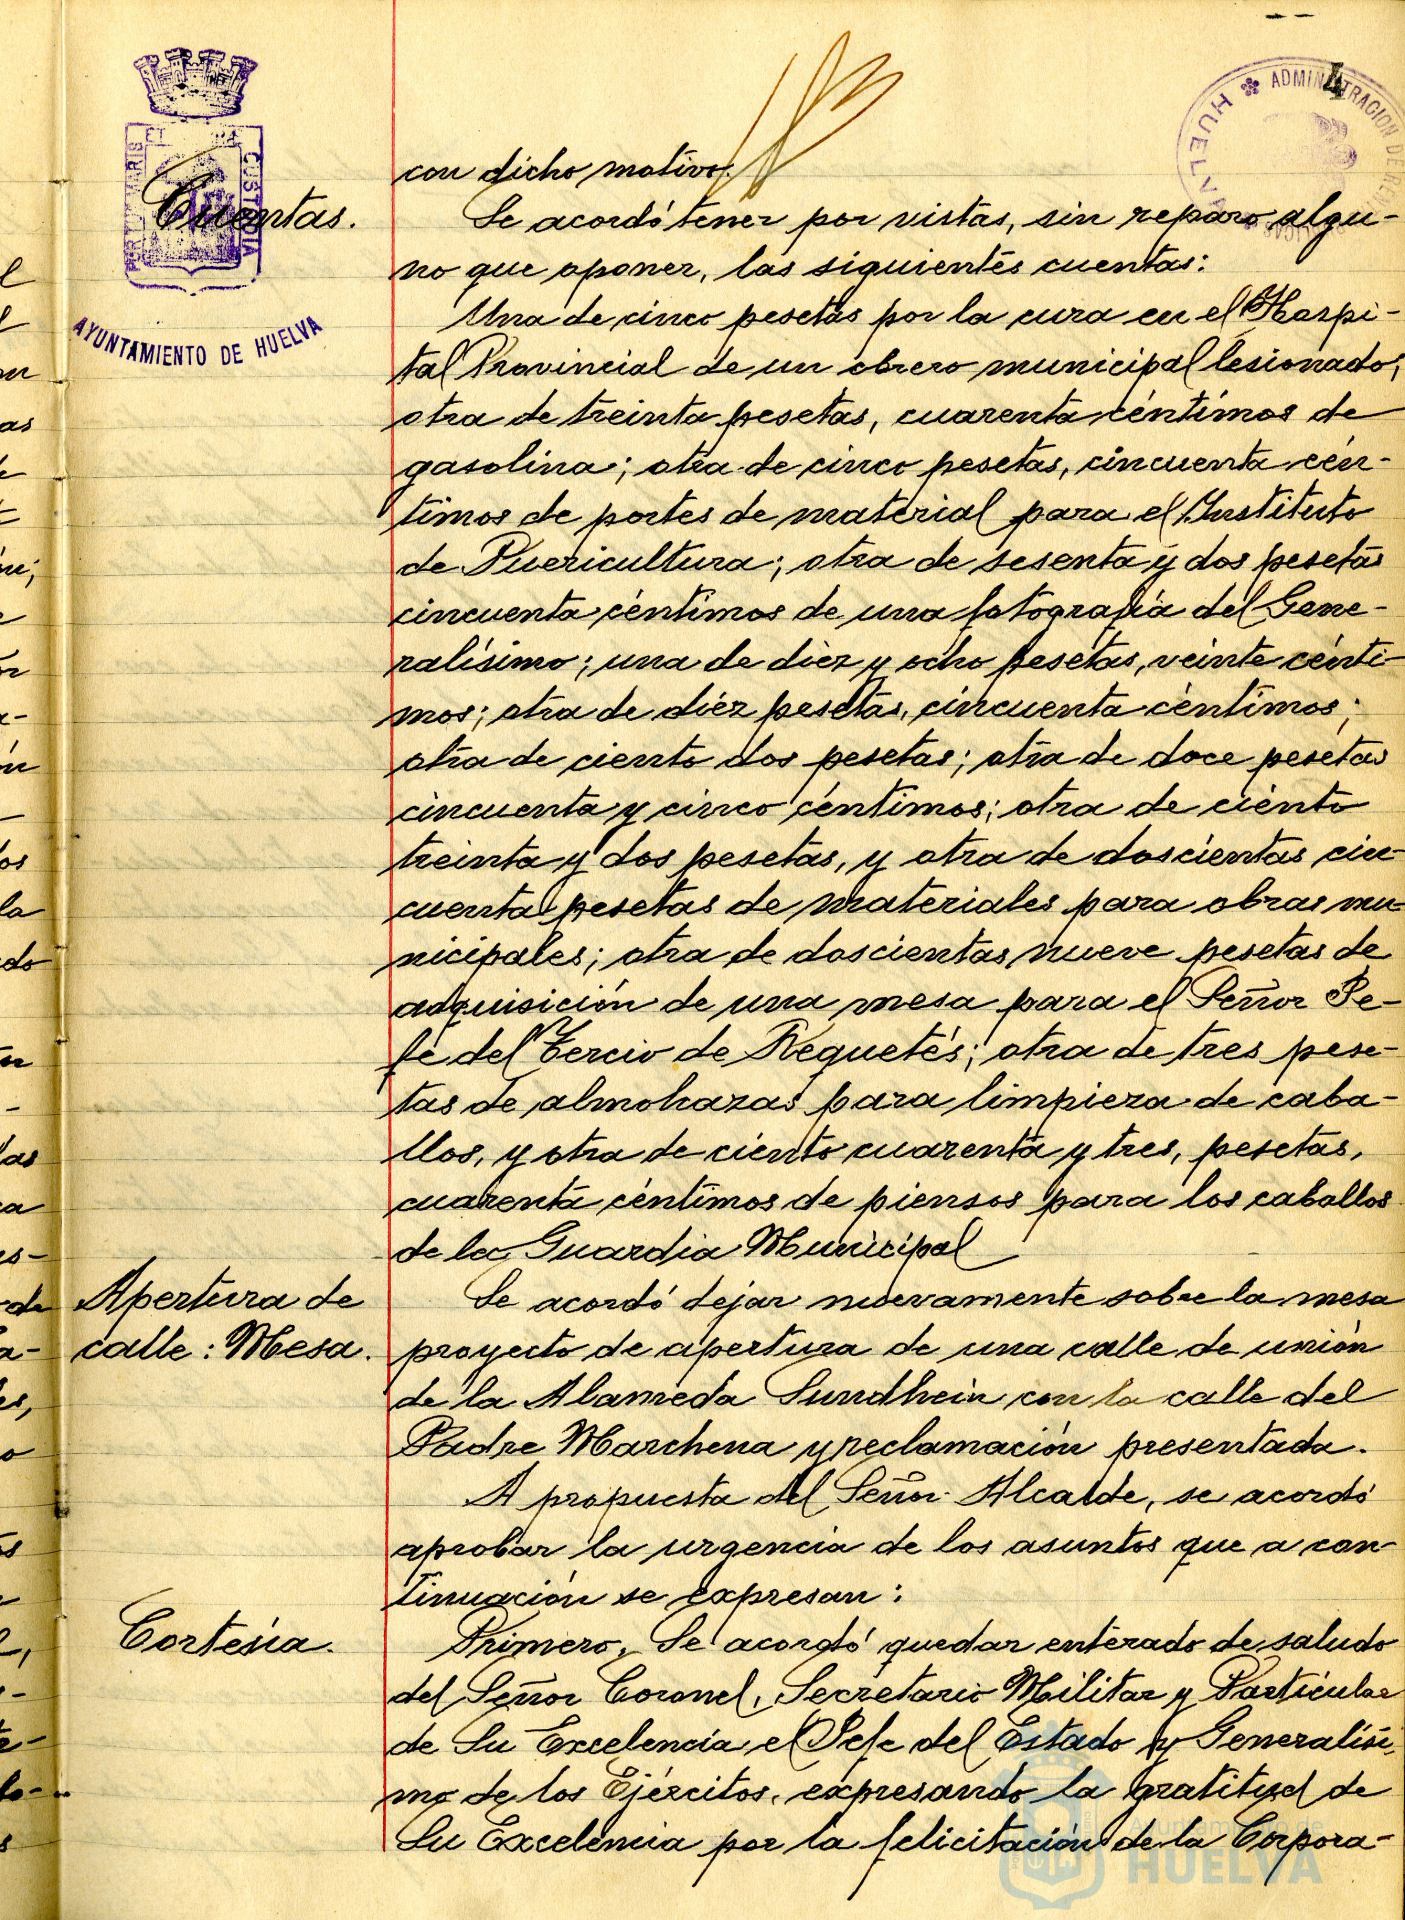 4
ADMINISTRACION DE RENTAS
HUELVA
PORTUS MARIS ET CUSTODIA
AYUNTAMIENTO DE HUELVA
con dicho motivo.
Cuentas.
Se acordó tener por vistas, sin reparo algu-
no que oponer, las siguientes cuentas:
Una de cinco pesetas por la cura en el Hospi-
tal Provincial de un obrero municipal lesionado;
otra de treinta pesetas, cuarenta céntimos de
gasolina; otra de cinco pesetas, cincuenta cén-
timos de portes de material para el Instituto
de Puericultura; otra de sesenta y dos pesetas
cincuenta céntimos de una fotografía del Gene-
ralísimo; una de diez y ocho pesetas, veinte cénti-
mos; otra de diéz pesetas, cincuenta céntimos;
otra de ciento dos pesetas; otra de doce pesetas
cincuenta y cinco céntimos; otra de ciento
treinta y dos pesetas, y otra de doscientas cin-
cuenta pesetas de materiales para obras mu-
nicipales; otra de doscientas nueve pesetas de
adquisición de una mesa para el Señor Je-
fe del Tercio de Requetés; otra de tres pese-
tas de almohazas para limpieza de caba-
llos, y otra de ciento cuarenta y tres, pesetas,
cuarenta céntimos de piensos para los caballos
de la Guardia Municipal
Apertura de
calle: Mesa.
Se acordó dejar nuevamente sobre la mesa
proyecto de apertura de una calle de unión
de la Alameda Sundhein con la calle del
Padre Marchena y reclamación presentada.
A propuesta del Señor Alcalde, se acordó
aprobar la urgencia de los asuntos que a con-
tinuación se expresan:
Cortesía.
Primero, Se acordó quedar enterado de saludo
del Señor Coronel, Secretario Militar y Particular
de Su Excelencia el Jefe del Estado y Generalísi-
mo de los Ejércitos, expresando la gratitud de
Su Excelencia por la felicitación de la Corpora-
Ayuntamiento de
HUELVA